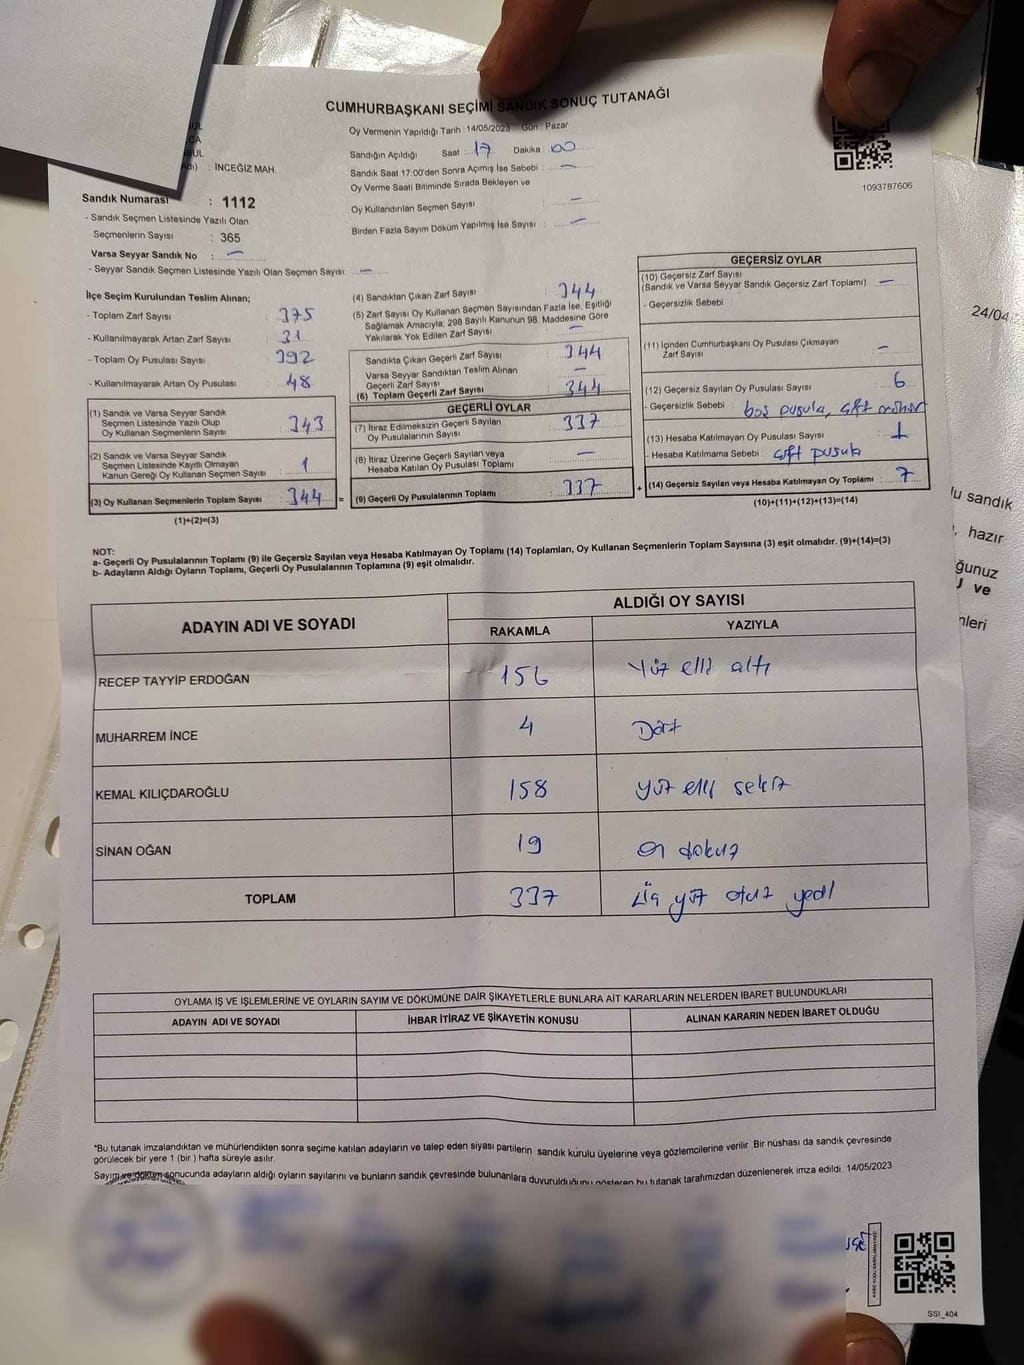 CUMHURBAŞKANI SEÇİMİ SANDIK SONUÇ TUTANAĞI
Oy Vermenin Yapıldığı Tarih : 14/05/2023 Gün : Pazar
Sandığın Açıldığı Saat : 17 Dakika : 00
Sandık Saat 17:00'den Sonra Açımış İse Sebebi : —
Oy Verme Saati Bitiminde Sırada Bekleyen ve
Oy Kullandırılan Seçmen Sayısı —
Birden Fazla Sayım Döküm Yapılmış İse Sayısı : —
1093787606
UL
CA
BUL
: İNCEĞİZ MAH.
Sandık Numarası : 1112
- Sandık Seçmen Listesinde Yazılı Olan
Seçmenlerin Sayısı : 365
Varsa Seyyar Sandık No : —
- Seyyar Sandık Seçmen Listesinde Yazılı Olan Seçmen Sayısı: —
İlçe Seçim Kurulundan Teslim Alınan;
- Toplam Zarf Sayısı : 375
- Kullanılmayarak Artan Zarf Sayısı : 31
- Toplam Oy Pusulası Sayısı : 392
- Kullanılmayarak Artan Oy Pusulası : 48
(1) Sandık ve Varsa Seyyar Sandık
Seçmen Listesinde Yazılı Olup
Oy Kullanan Seçmenlerin Sayısı : 343
(2) Sandık ve Varsa Seyyar Sandık
Seçmen Listesinde Kayıtlı Olmayan
Kanun Gereği Oy Kullanan Seçmen Sayısı : 1
(3) Oy Kullanan Seçmenlerin Toplam Sayısı : 344 =
(1)+(2)=(3)
(4) Sandıktan Çıkan Zarf Sayısı : 344
(5) Zarf Sayısı Oy Kullanan Seçmen Sayısından Fazla İse, Eşitliği
Sağlamak Amacıyla, 298 Sayılı Kanunun 98. Maddesine Göre
Yakılarak Yok Edilen Zarf Sayısı —
Sandıkta Çıkan Geçerli Zarf Sayısı : 344
Varsa Seyyar Sandıktan Teslim Alınan
Geçerli Zarf Sayısı : —
(6) Toplam Geçerli Zarf Sayısı : 344
GEÇERLİ OYLAR
(7) İtiraz Edilmeksizin Geçerli Sayılan
Oy Pusulalarının Sayısı : 337
(8) İtiraz Üzerine Geçerli Sayılan veya
Hesaba Katılan Oy Pusulası Toplamı : —
(9) Geçerli Oy Pusulalarının Toplamı : 337 +
GEÇERSİZ OYLAR
(10) Geçersiz Zarf Sayısı
(Sandık ve Varsa Seyyar Sandık Geçersiz Zarf Toplamı) : —
- Geçersizlik Sebebi :
(11) İçinden Cumhurbaşkanı Oy Pusulası Çıkmayan
Zarf Sayısı : —
(12) Geçersiz Sayılan Oy Pusulası Sayısı : 6
- Geçersizlik Sebebi : boş pusula, çift mühür
(13) Hesaba Katılmayan Oy Pusulası Sayısı : 1
- Hesaba Katılmama Sebebi : çift pusula
(14) Geçersiz Sayılan veya Hesaba Katılmayan Oy Toplamı : 7
(10)+(11)+(12)+(13)=(14)
NOT:
a- Geçerli Oy Pusulalarının Toplamı (9) ile Geçersiz Sayılan veya Hesaba Katılmayan Oy Toplamı (14) Toplamları, Oy Kullanan Seçmenlerin Toplam Sayısına (3) eşit olmalıdır. (9)+(14)=(3)
b- Adayların Aldığı Oyların Toplamı, Geçerli Oy Pusulalarının Toplamına (9) eşit olmalıdır.
ADAYIN ADI VE SOYADI ALDIĞI OY SAYISI
RAKAMLA YAZIYLA
RECEP TAYYİP ERDOĞAN 156 Yüz elli altı
MUHARREM İNCE 4 Dört
KEMAL KILIÇDAROĞLU 158 yüz elli sekiz
SİNAN OĞAN 19 on dokuz
TOPLAM 337 üç yüz otuz yedi
OYLAMA İŞ VE İŞLEMLERİNE VE OYLARIN SAYIM VE DÖKÜMÜNE DAİR ŞİKAYETLERLE BUNLARA AİT KARARLARIN NELERDEN İBARET BULUNDUKLARI
ADAYIN ADI VE SOYADI İHBAR İTİRAZ VE ŞİKAYETİN KONUSU ALINAN KARARIN NEDEN İBARET OLDUĞU
*Bu tutanak imzalandıktan ve mühürlendikten sonra seçime katılan adayların ve talep eden siyasi partilerin sandık kurulu üyelerine veya gözlemcilerine verilir. Bir nüshası da sandık çevresinde
görülecek bir yere 1 (bir ) hafta süreyle asılır.
Sayım ve döküm sonucunda adayların aldığı oyların sayılarını ve bunların sandık çevresinde bulunanlara duyurulduğunu gösteren bu tutanak tarafımızdan düzenlenerek imza edildi. 14/05/2023
SSI_404
24/04
u sandık
hazır
ğunuz
ve
nleri